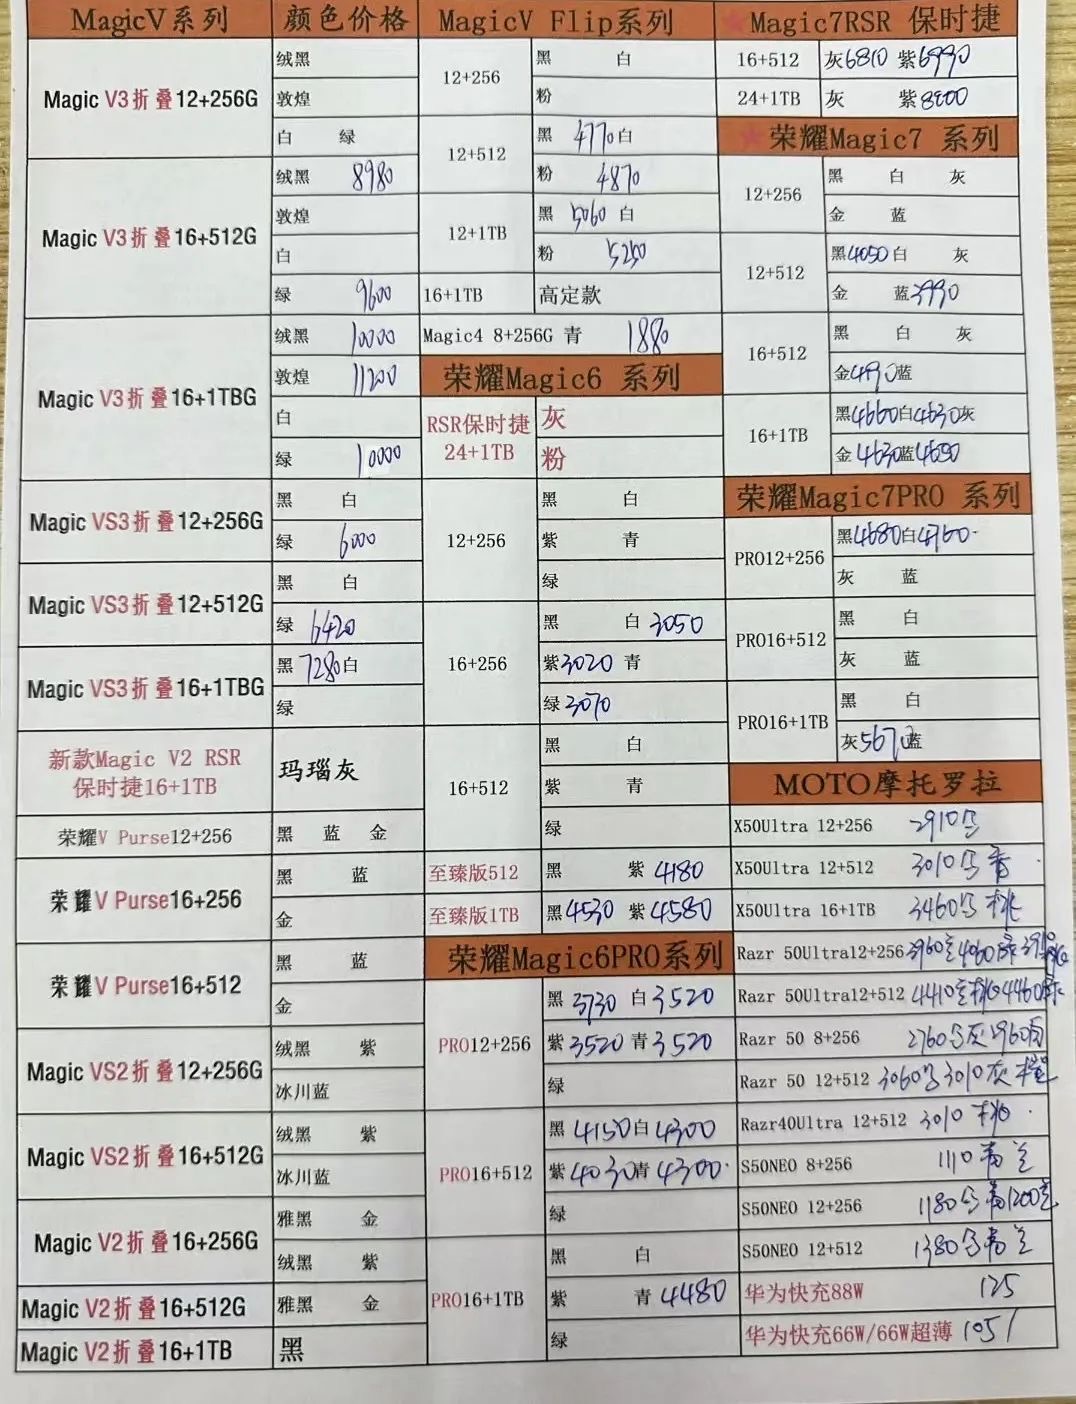 MagicV系列 颜色价格
Magic V3折叠12+256G
绒黑
敦煌
白 绿
Magic V3折叠16+512G
绒黑 8980
敦煌
白
绿 9600
Magic V3折叠16+1TBG
绒黑 10000
敦煌 11200
白
绿 10000
Magic VS3折叠12+256G
黑 白
绿 6000
Magic VS3折叠12+512G
黑 白
绿 6420
Magic VS3折叠16+1TBG
黑7280白
绿
新款Magic V2 RSR
保时捷16+1TB
玛瑙灰
荣耀V Purse12+256
黑 蓝 金
荣耀V Purse16+256
黑 蓝
金
荣耀V Purse16+512
黑 蓝
金
Magic VS2折叠12+256G
绒黑 紫
冰川蓝
Magic VS2折叠16+512G
绒黑 紫
冰川蓝
Magic V2折叠16+256G
雅黑 金
绒黑 紫
Magic V2折叠16+512G
雅黑 金
Magic V2折叠16+1TB
黑
MagicV Flip系列
12+256
黑 白
粉
12+512
黑 4770白
粉 4870
12+1TB
黑 5060 白
粉 5250
16+1TB 高定款
Magic4 8+256G 青 1880
荣耀Magic6 系列
RSR保时捷
24+1TB
灰
粉
12+256
黑 白
紫 青
绿
16+256
黑 白 3050
紫3020 青
绿3070
16+512
黑 白
紫 青
绿
至臻版512 黑 紫 4180
至臻版1TB 黑4530 紫4580
荣耀Magic6PRO系列
PRO12+256
黑 3730 白3520
紫3520 青3520
绿
PRO16+512
黑 4150白4300
紫4030青4300
绿
PRO16+1TB
黑 白
紫 青4480
绿
★Magic7RSR 保时捷
16+512 灰6810 紫6990
24+1TB 灰 紫8200
★荣耀Magic7 系列
12+256
黑 白 灰
金 蓝
12+512
黑4050白 灰
金 蓝3990
16+512
黑 白 灰
金4190蓝
16+1TB
黑4660白4630灰
金4630蓝4690
荣耀Magic7PRO 系列
PRO12+256
黑4680白4760
灰 蓝
PRO16+512
黑 白
灰 蓝
PRO16+1TB
黑 白
灰5670蓝
MOTO摩托罗拉
X50Ultra 12+256 2910
X50Ultra 12+512 3010
X50Ultra 16+1TB 3460 桃
Razr 50Ultra12+256 3960 4060
Razr 50Ultra12+512 4410 桃4460
Razr 50 8+256 2760 灰2960
Razr 50 12+512 3060 3010灰 橙
Razr40Ultra 12+512 3010 桃
S50NEO 8+256 1110
S50NEO 12+256 1180 1200
S50NEO 12+512 1380
华为快充88W 125
华为快充66W/66W超薄 105